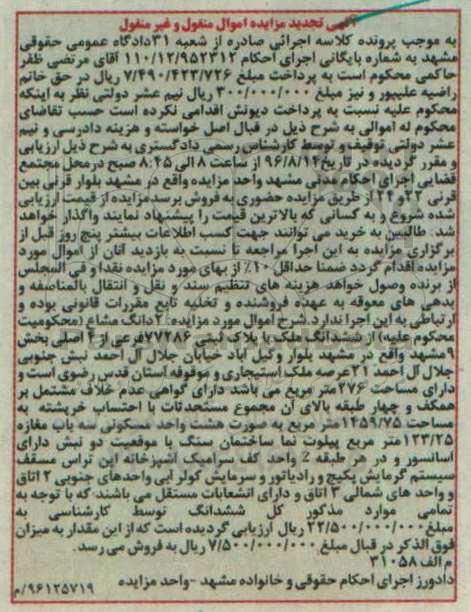 آگهی تجدید مزایده اموال منقول و غیر منقول
به موجب پرونده کلاسه اجرائی صادره از شعبه ۳۱دادگاه عمومی حقوقی
مشهد به شماره بایگانی اجرای احکام ۱۱۰/۱۲/۹۵۲۳۱۲ آقای مرتضی ظفر
حاکمی محکوم است به پرداخت مبلغ ۷/۴۹۰/۴۲۳/۷۲۶ ریال در حق خانم
راضیه علیپور و نیز مبلغ ۳۰۰/۰۰۰/۰۰۰ ریال نیم عشر دولتی نظر به اینکه
محکوم علیه نسبت به پرداخت دیونش اقدامی نکرده است حسب تقاضای
محکوم له اموالی به شرح ذیل در قبال اصل خواسته و هزینه دادرسی و نیم
عشر دولتی توقیف و توسط کارشناس رسمی دادگستری به شرح ذیل ارزیابی
و مقرر گردیده در تاریخ ۹۶/۸/۱۴ از ساعت ۸ الی ۸:۴۵ صبح درمحل مجتمع
قضایی اجرای احکام مدنی مشهد واحد مزایده واقع در مشهد بلوار قرنی بین
قرنی ۲۲و۲۴ از طریق مزایده حضوری به فروش برسد.مزایده از قیمت ارزیابی
شده شروع و به کسانی که بالاترین قیمت را پیشنهاد نمایند واگذار خواهد
شد. طالبین به خرید می توانند جهت کسب اطلاعات بیشتر پنج روز قبل از
برگزاری مزایده به این اجرا مراجعه تا نسبت به بازدید آنان از اموال مورد
مزایده اقدام گردد ضمنا حداقل ۱۰٪ از بهای مورد مزایده نقدا و فی المجلس
از برنده وصول خواهد هزینه های تنظیم سند و نقل و انتقال بالمناصفه و
بدهی های معوقه به عهده فروشنده و تخلیه تابع مقررات قانونی بوده و
ارتباطی به این اجرا ندارد.شرح اموال مورد مزایده:۲دانگ مشاع (محکومیت
محکوم علیه) از ششدانگ ملک با پلاک ثبتی ۷۷۲۸۶فرعی از ۴ اصلی بخش
۹مشهد واقع در مشهد بلوار وکیل آباد خیابان جلال آل احمد نبش جنوبی
جلال آل احمد ۲۱عرصه ملک استیجاری و موقوفه آستان قدس رضوی است و
دارای مساحت ۲۷۶متر مربع می باشد دارای گواهی عدم خلاف مشتمل بر
همکف و چهار طبقه بالای آن مجموع مستحدثات با احتساب خرپشته به
مساحت ۱۴۵۹/۷۵متر مربع به صورت هشت واحد مسکونی سه باب مغازه
۱۲۳/۲۵متر مربع پیلوت نما ساختمان سنگ با موقعیت دو نبش دارای
آسانسور و در هر طبقه ۲ واحد کف سرامیک آشپزخانه اپن تراس مسقف
سیستم گرمایش پکیج و رادیاتور و سرمایش کولر آبی واحدهای جنوبی ۲ اتاق
و واحد های شمالی ۳ اتاق و دارای انشعابات مستقل می باشند که با توجه به
تمامی موارد مذکور کل ششدانگ توسط کارشناسی به
مبلغ ۲۲/۵۰۰/۰۰۰/۰۰۰ ریال ارزیابی گردیده است که از این مقدار به میزان
فوق الذکر در قبال مبلغ ۷/۵۰۰/۰۰۰/۰۰۰ ریال به فروش می رسد.
م الف ۳۱۰۵۸
دادورز اجرای احکام حقوقی و خانواده مشهد -واحد مزایده ۹۶۱۲۵۷۱۹/م